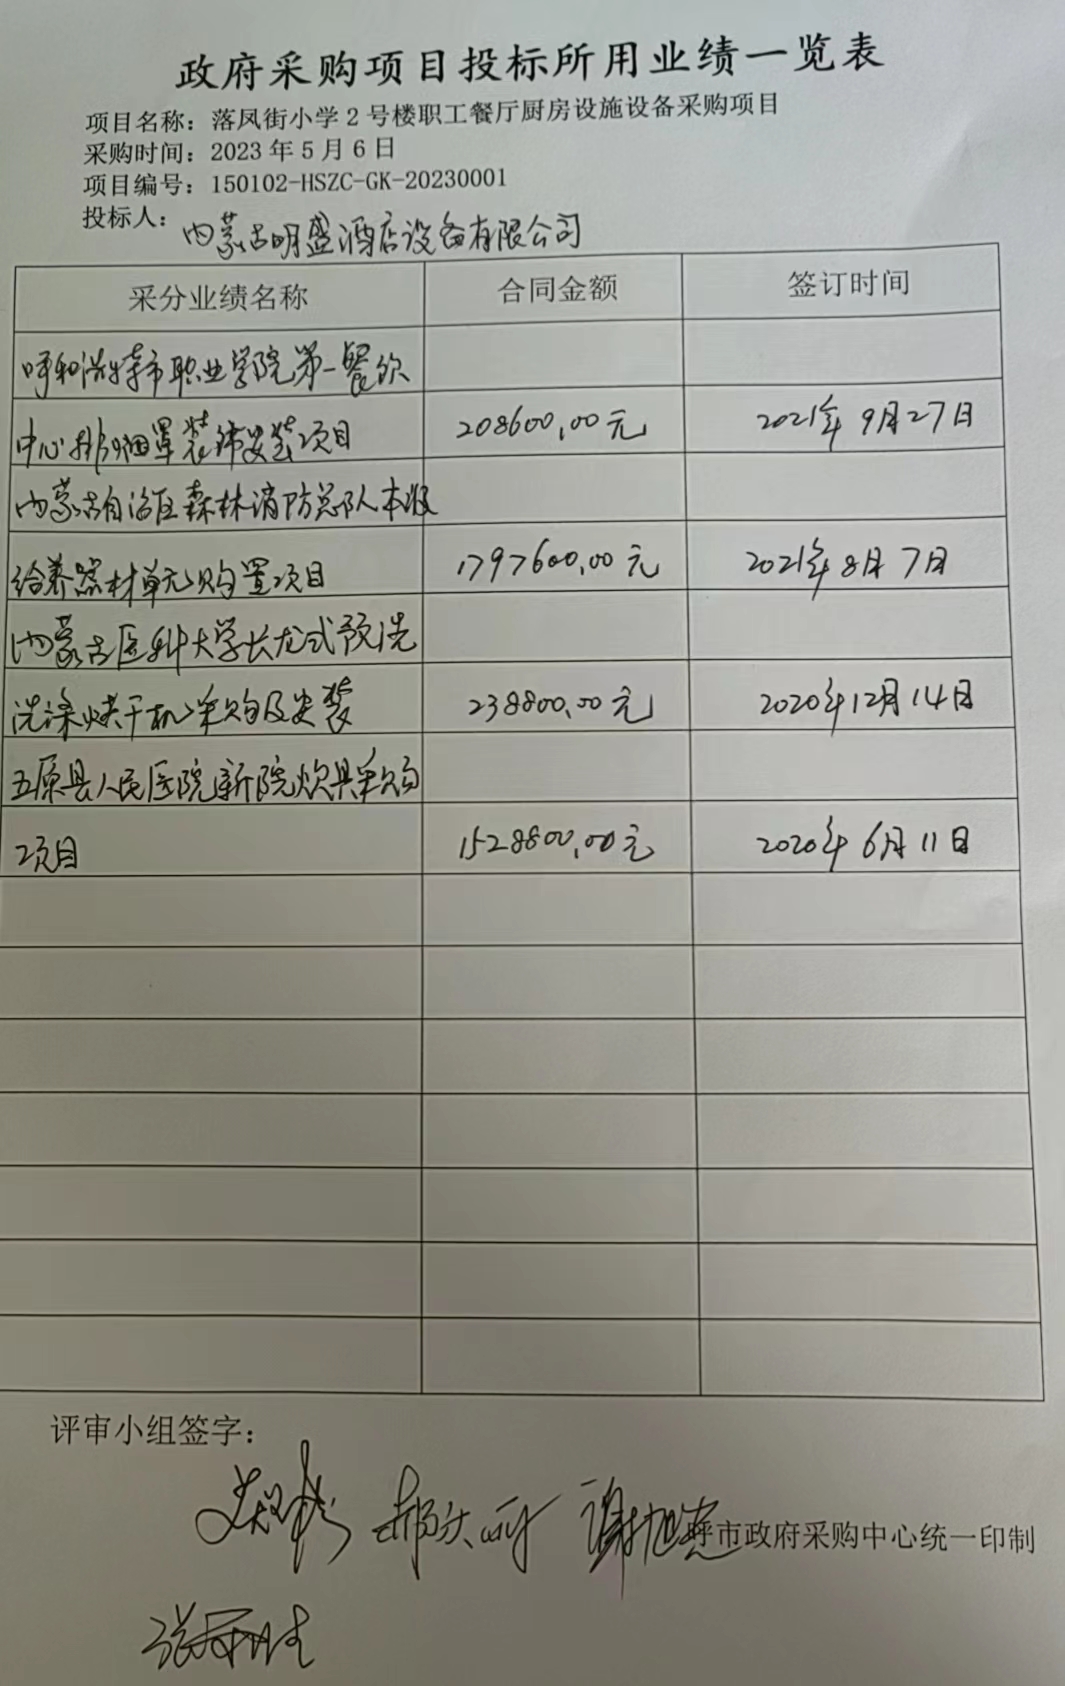 政府采购项目投标所用业绩一览表
项目名称：落凤街小学2号楼职工餐厅厨房设施设备采购项目
采购时间：2023年5月6日
项目编号：150102-HSZC-GK-20230001
投标人：内蒙古明盛酒店设备有限公司
采分业绩名称 合同金额 签订时间
呼和浩特市职业学院第一餐饮
中心排烟罩装饰安装项目 208600.00元 2021年9月27日
内蒙古自治区森林消防总队本级
给养器材单元购置项目 1797600.00元 2021年8月7日
内蒙古医科大学长龙式预洗
洗涤烘干机采购及安装 238800.00元 2020年12月14日
五原县人民医院新院炊具采购
项目 1528800.00元 2020年6月11日
评审小组签字：
呼市政府采购中心统一印制